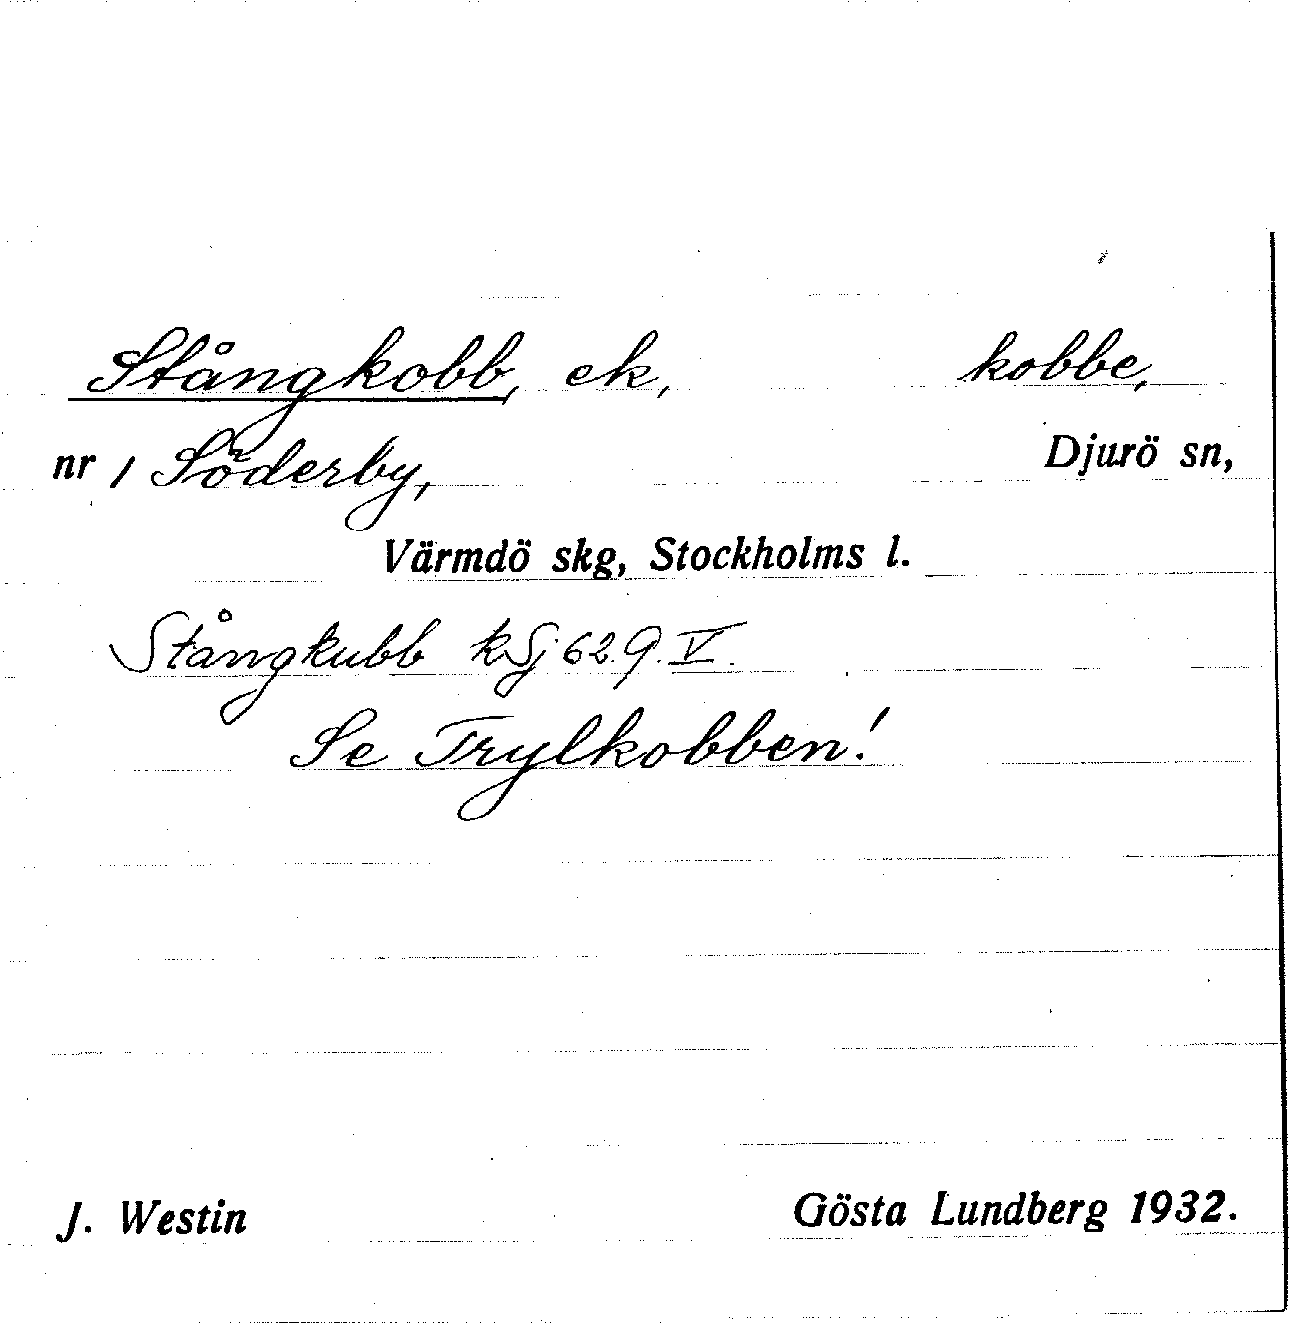 Stångkobb, ek, kobbe,
nr 1 Söderby, Djurö sn,
Värmdö skg, Stockholms l.
Stångkubb kSj 62.9.V.
Se Trylkobben!
J. Westin Gösta Lundberg 1932.